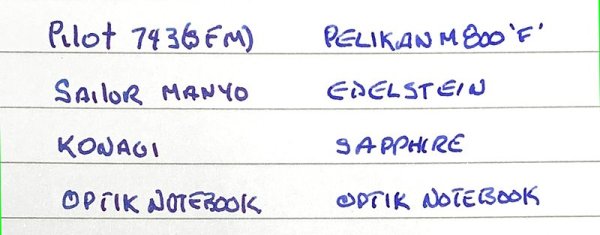 Pilot 743(SFM) PELIKAN M800 'F'
SAILOR MANYO EDELSTEIN
KONAGI SAPPHIRE
OPTIK NOTEBOOK OPTIK NOTEBOOK